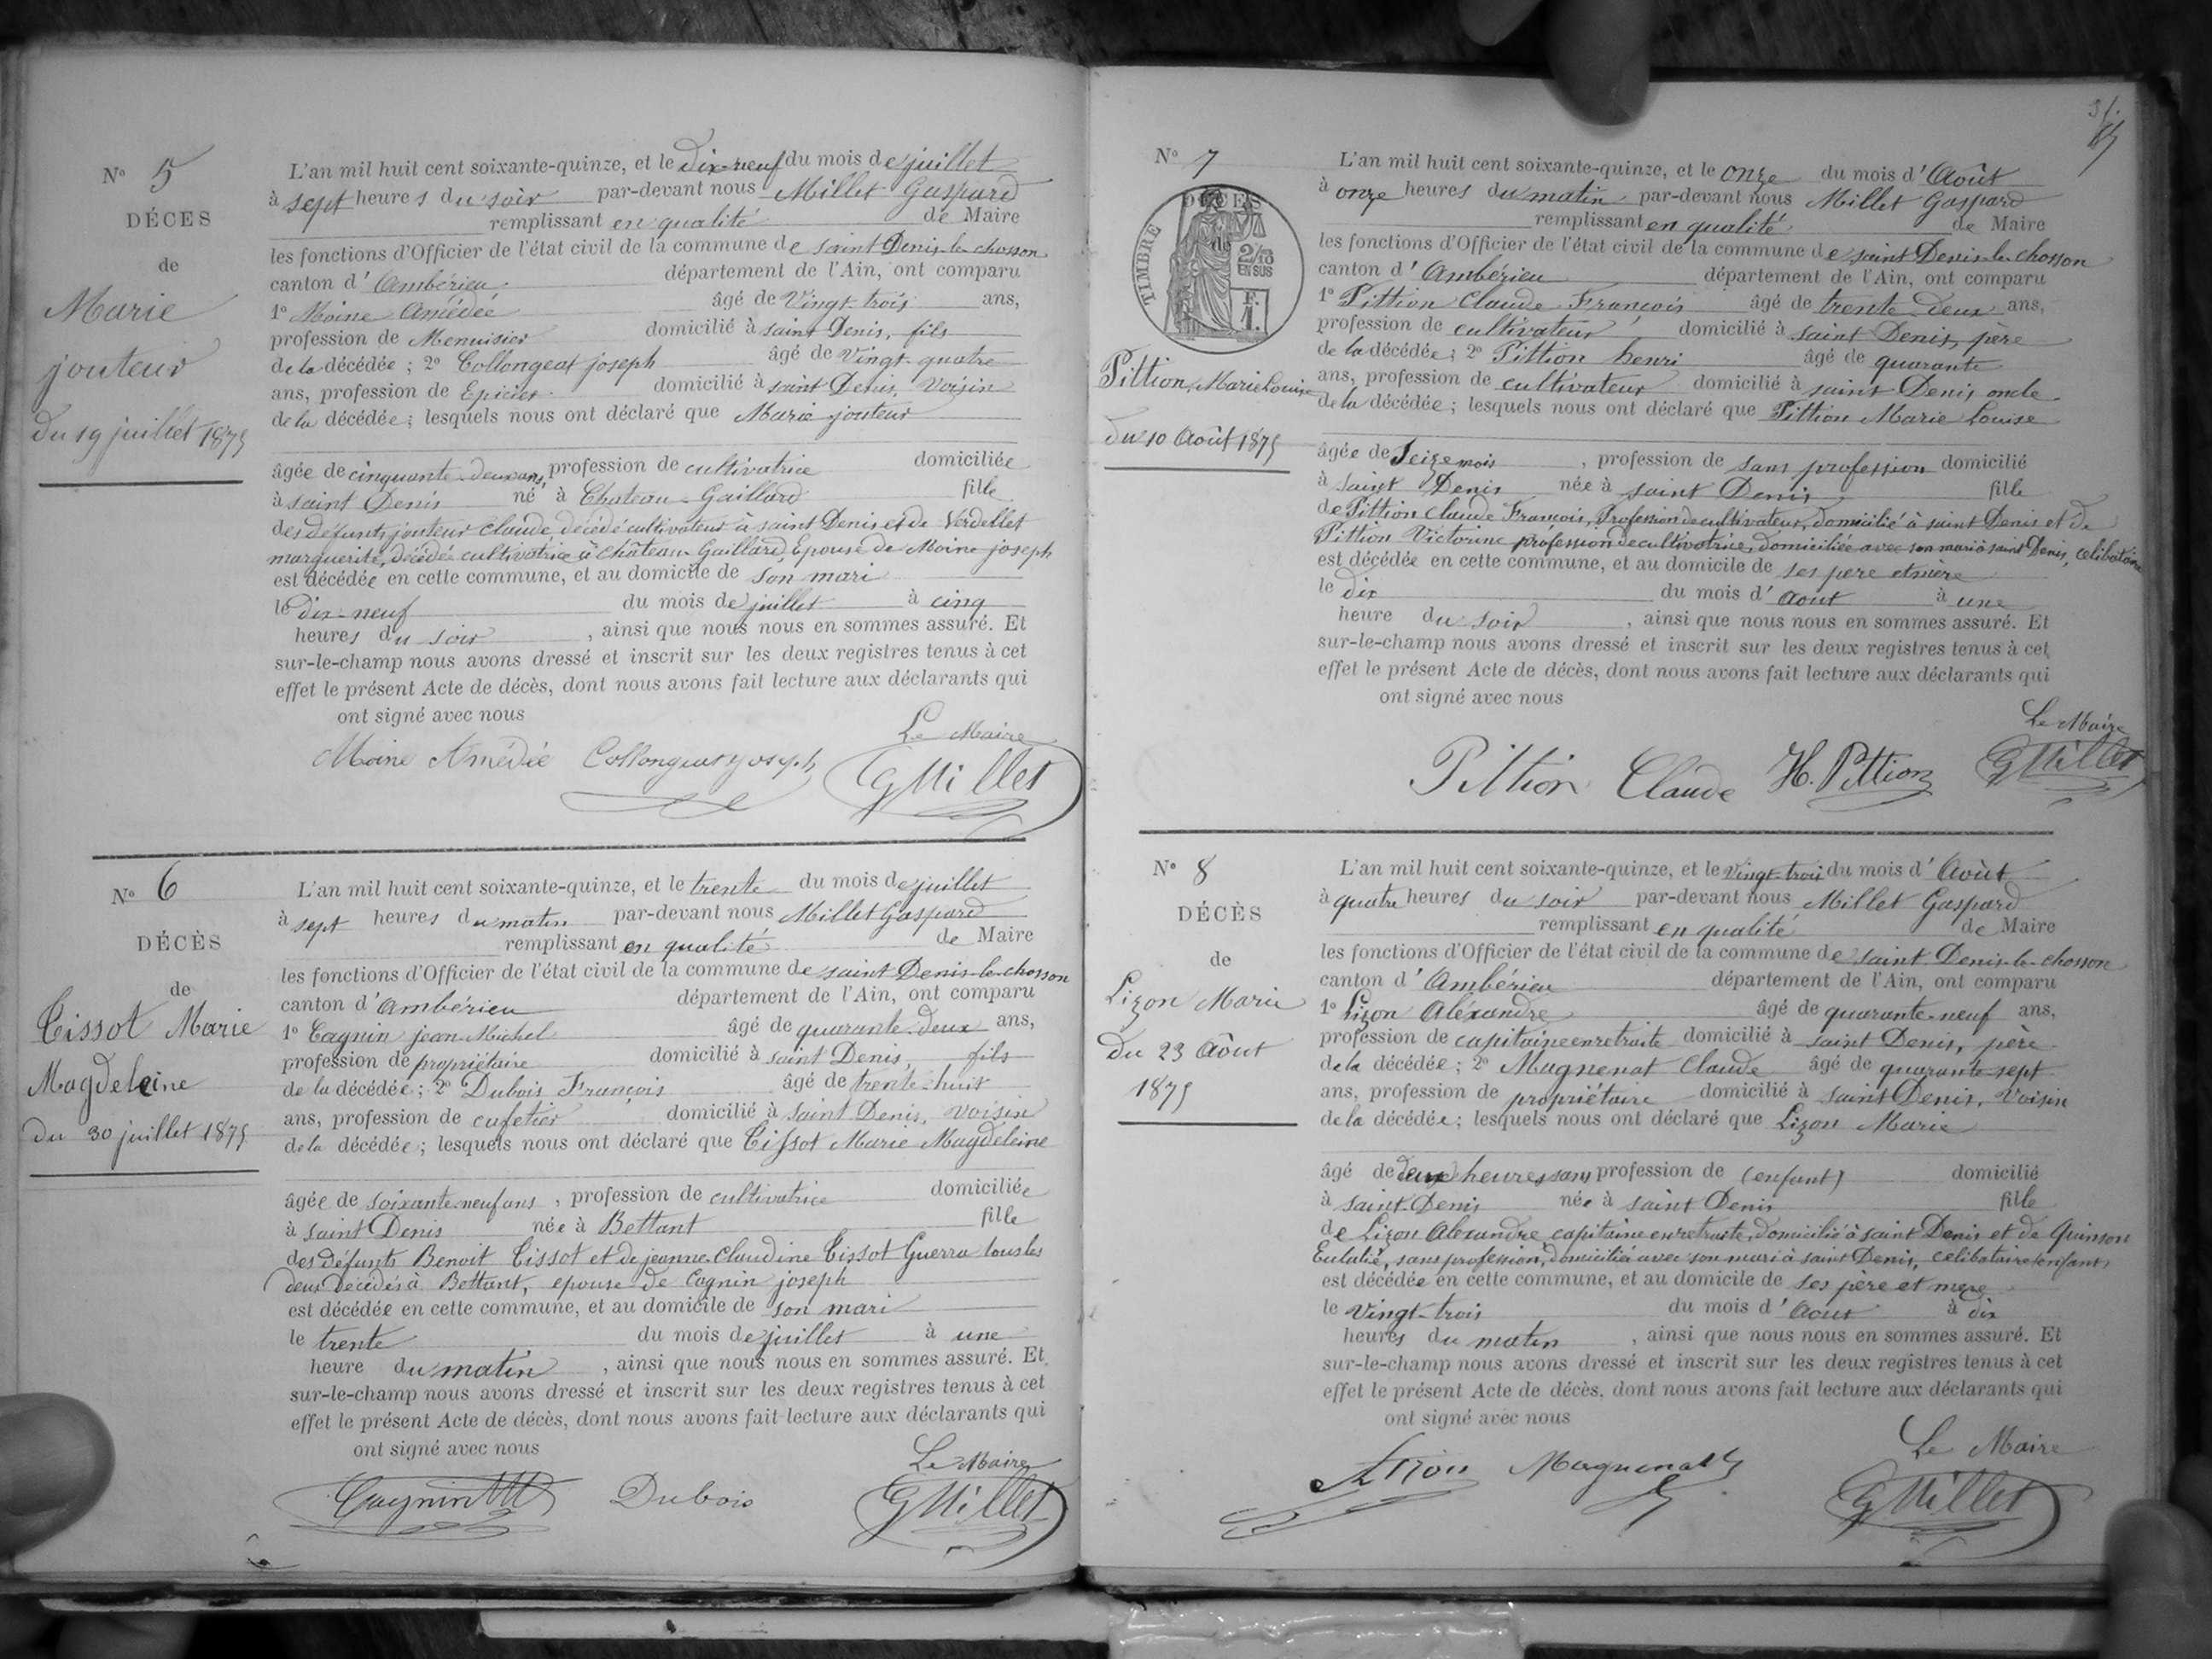 N° 5
DÉCES
de
Marie
jouteur
du 19 juillet 1875
L'an mil huit cent soixante-quinze, et le dix-neuf du mois de juillet
à sept heures du soir par-devant nous Millet Gaspard
remplissant en qualité de Maire
les fonctions d'Officier de l'état civil de la commune de saint Denis-le-chosson
canton d'Ambérieu département de l'Ain, ont comparu
1° Moine Amédée âgé de Vingt-trois ans,
profession de Menuisier domicilié à saint Denis, fils
de la décédée ; 2° Collongeat joseph âgé de Vingt-quatre
ans, profession de Epicier domicilié à saint Denis, Voisin
de la décédée ; lesquels nous ont déclaré que Marie jouteur
âgée de cinquante-deux ans, profession de cultivatrice domiciliée
à saint Denis né à Chateau-Gaillard fille
des défunts jouteur Claude, décédé cultivateur à saint Denis et de Verdellet
marguerite, décédée cultivatrice à Château-Gaillard, Epouse de Moine joseph
est décédée en cette commune, et au domicile de son mari
le dix-neuf du mois de juillet à cinq
heures du soir, ainsi que nous nous en sommes assuré. Et
sur-le-champ nous avons dressé et inscrit sur les deux registres tenus à cet
effet le présent Acte de décès, dont nous avons fait lecture aux déclarants qui
ont signé avec nous
Le Maire
Moine Amédée Collongeat joseph G Millet
N° 6
DÉCÈS
de
Tissot Marie
Magdeleine
du 30 juillet 1875
L'an mil huit cent soixante-quinze, et le trente du mois de juillet
à sept heures du matin par-devant nous Millet Gaspard
remplissant en qualité de Maire
les fonctions d'Officier de l'état civil de la commune de saint Denis-le-chosson
canton d'Ambérieu département de l'Ain, ont comparu
1° Cagnin jean-Michel âgé de quarante-deux ans,
profession de propriétaire domicilié à saint Denis, fils
de la décédée ; 2° Dubois François âgé de trente-huit
ans, profession de cafetier domicilié à saint Denis, voisin
de la décédée ; lesquels nous ont déclaré que Tissot Marie Magdeleine
âgée de soixante-neuf ans, profession de cultivatrice domiciliée
à saint Denis née à Bettant fille
des défunts Benoit Tissot et de jeanne-Claudine Tissot Guerra tous les
deux décédés à Bettant, epouse de Cagnin joseph
est décédée en cette commune, et au domicile de son mari
le trente du mois de juillet à une
heure du matin, ainsi que nous nous en sommes assuré. Et
sur-le-champ nous avons dressé et inscrit sur les deux registres tenus à cet
effet le présent Acte de décès, dont nous avons fait lecture aux déclarants qui
ont signé avec nous
Le Maire
Cagnin Dubois G Millet
31.
N° 7
DÉCÈS
de
TIMBRE
2/10
EN SUS
F.
1.
Pittion, Marie Louise
du 10 Août 1875
L'an mil huit cent soixante-quinze, et le onze du mois d'Août
à onze heures du matin par-devant nous Millet Gaspard
remplissant en qualité de Maire
les fonctions d'Officier de l'état civil de la commune de saint Denis-le-chosson
canton d'Ambérieu département de l'Ain, ont comparu
1° Pittion Claude-François âgé de trente-deux ans,
profession de cultivateur domicilié à saint Denis, père
de la décédée ; 2° Pittion henri âgé de quarante
ans, profession de cultivateur domicilié à saint Denis oncle
de la décédée ; lesquels nous ont déclaré que Pittion Marie Louise
âgée de Seize mois, profession de sans profession domicilié
à Saint Denis née à saint Denis fille
de Pittion Claude François, Profession de cultivateur, domicilié à saint Denis et de
Pittion Victorine profession de cultivatrice, domiciliée avec son mari à saint Denis, célibataire
est décédée en cette commune, et au domicile de ses père et mère
le dix du mois d'Aout à une
heure du soir, ainsi que nous nous en sommes assuré. Et
sur-le-champ nous avons dressé et inscrit sur les deux registres tenus à cet
effet le présent Acte de décès, dont nous avons fait lecture aux déclarants qui
ont signé avec nous
Le Maire
Pittion Claude H. Pittion G Millet
N° 8
DÉCÈS
de
Lizon Marie
du 23 Août
1875
L'an mil huit cent soixante-quinze, et le Vingt-trois du mois d'Août
à quatre heures du soir par-devant nous Millet Gaspard
remplissant en qualité de Maire
les fonctions d'Officier de l'état civil de la commune de saint Denis-le-chosson
canton d'Ambérieu département de l'Ain, ont comparu
1° Lizon Aléxandre âgé de quarante-neuf ans,
profession de capitaine en retraite domicilié à saint Denis, père
de la décédée ; 2° Mugnenat Claude âgé de quarante-sept
ans, profession de propriétaire domicilié à saint Denis, Voisin
de la décédée ; lesquels nous ont déclaré que Lizon Marie
âgé de deux heures sans profession de (enfant) domicilié
à saint-Denis née à saint Denis fille
de Lizon Alexandre capitaine en retraite, domicilié à saint Denis et de Quinson
Eulalie, sans profession, domiciliée avec son mari à saint Denis, célibataire (enfant)
est décédée en cette commune, et au domicile de ses père et mère
le Vingt-trois du mois d'Aout à dix
heures du matin, ainsi que nous nous en sommes assuré. Et
sur-le-champ nous avons dressé et inscrit sur les deux registres tenus à cet
effet le présent Acte de décès, dont nous avons fait lecture aux déclarants qui
ont signé avec nous
Le Maire
Lizon Magnenat G Millet